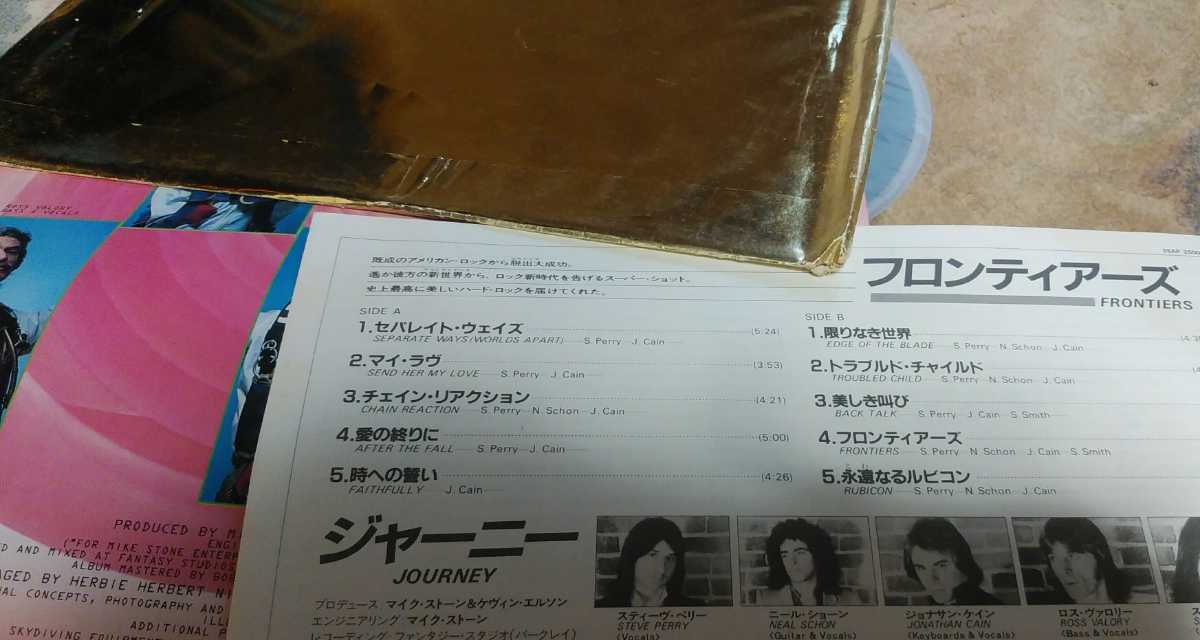 ROSS VALORY
BASS & VOCALS
既成のアメリカン・ロックから脱出大成功。
遥か彼方の新世界から、ロック新時代を告げるスーパー・ショット。
史上最高に美しいハード・ロックを届けてくれた。
フロンティアーズ
FRONTIERS
SIDE A
1.セパレイト・ウェイズ (5:24)
SEPARATE WAYS (WORLDS APART) S. Perry J. Cain
2.マイ・ラヴ (3:53)
SEND HER MY LOVE S. Perry J. Cain
3.チェイン・リアクション (4:21)
CHAIN REACTION S. Perry N. Schon J. Cain
4.愛の終りに (5:00)
AFTER THE FALL S. Perry J. Cain
5.時への誓い (4:26)
FAITHFULLY J. Cain
SIDE B
1.限りなき世界
EDGE OF THE BLADE S. Perry N. Schon J. Cain
2.トラブルド・チャイルド
TROUBLED CHILD S. Perry N. Schon J. Cain
3.美しき叫び
BACK TALK S. Perry J. Cain S. Smith
4.フロンティアーズ
FRONTIERS S. Perry N. Schon J. Cain S. Smith
5.永遠なるルビコン
RUBICON S. Perry N. Schon J. Cain
ジャーニー
JOURNEY
プロデュース/マイク・ストーン&ケヴィン・エルソン
エンジニアリング/マイク・ストーン
レコーディング/ファンタジー・スタジオ(バークレイ)
スティーヴ・ペリー
STEVE PERRY
(Vocals)
ニール・ショーン
NEAL SCHON
(Guitar & Vocals)
ジョナサン・ケイン
JONATHAN CAIN
(Keyboards & Vocals)
ロス・ヴァロリー
ROSS VALORY
(Bass & Vocals)
PRODUCED BY M
("FOR MIKE STONE ENTERP
D AND MIXED AT FANTASY STUDIOS
ALBUM MASTERED BY BOB
AGED BY HERBIE HERBERT
AL CONCEPTS, PHOTOGRAPHY AND
ADDITIONAL P
SKYDIVING EQUIPMENT